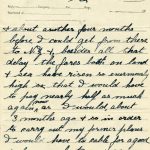 & about another four months
before I could get from there
to N.Z & besides all that
delay the fares both on land
& sea have risen so enormously
high so that I would have
to pay nearly half as much
again as I would, about
3 months ago & so in order
to carry out my former plans
I would have to cable for again